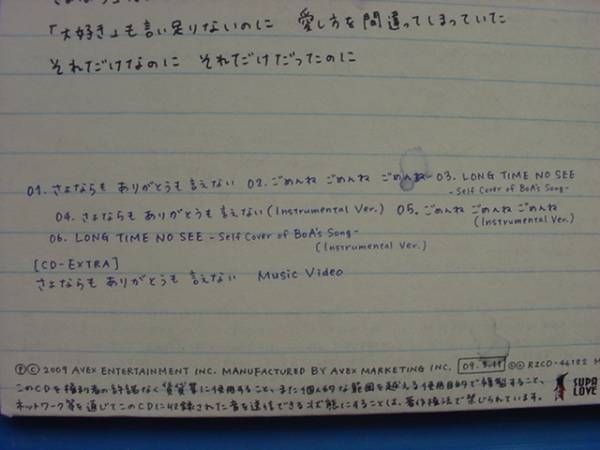 「大好き」も言い足りないのに 愛し方を間違ってしまっていた
それだけなのに それだけだったのに
01. さよならも ありがとうも 言えない 02. ごめんね ごめんね ごめんね 03. LONG TIME NO SEE
- Self Cover of BoA's Song -
04. さよならも ありがとうも 言えない (Instrumental Ver.) 05. ごめんね ごめんね ごめんね
(Instrumental Ver.)
06. LONG TIME NO SEE - Self Cover of BoA's Song -
(Instrumental Ver.)
[CD-EXTRA]
さよならも ありがとうも 言えない Music Video
Ⓟ© 2009 AVEX ENTERTAINMENT INC. MANUFACTURED BY AVEX MARKETING INC. RZCD-46182
このCDを権利者の許諾なく賃貸業に使用すること、また個人的な範囲を越える使用目的で複製すること、
ネットワーク等を通じてこのCDに収録された音を送信できる状態にすることは、著作権法で禁じられています。
SUPA
LOVE